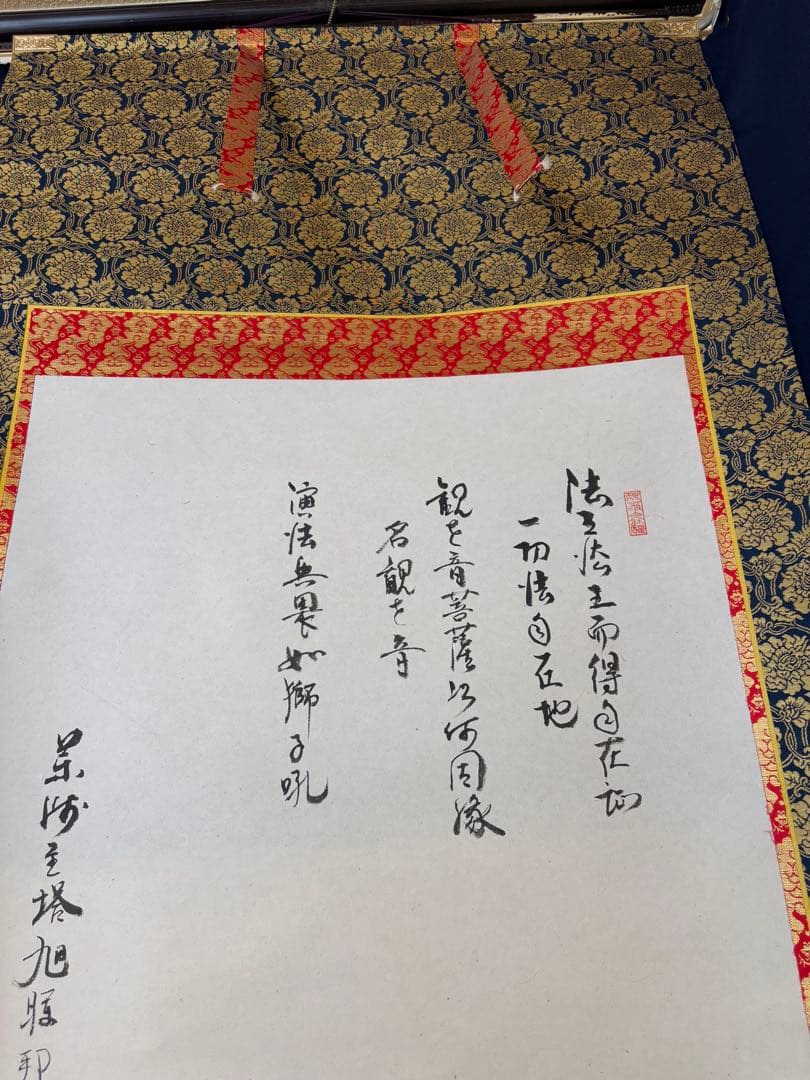 法王法主而得自在
一切法自在地
観世音菩薩以何因縁
名観世音
演法無畏如獅子吼
主塔旭